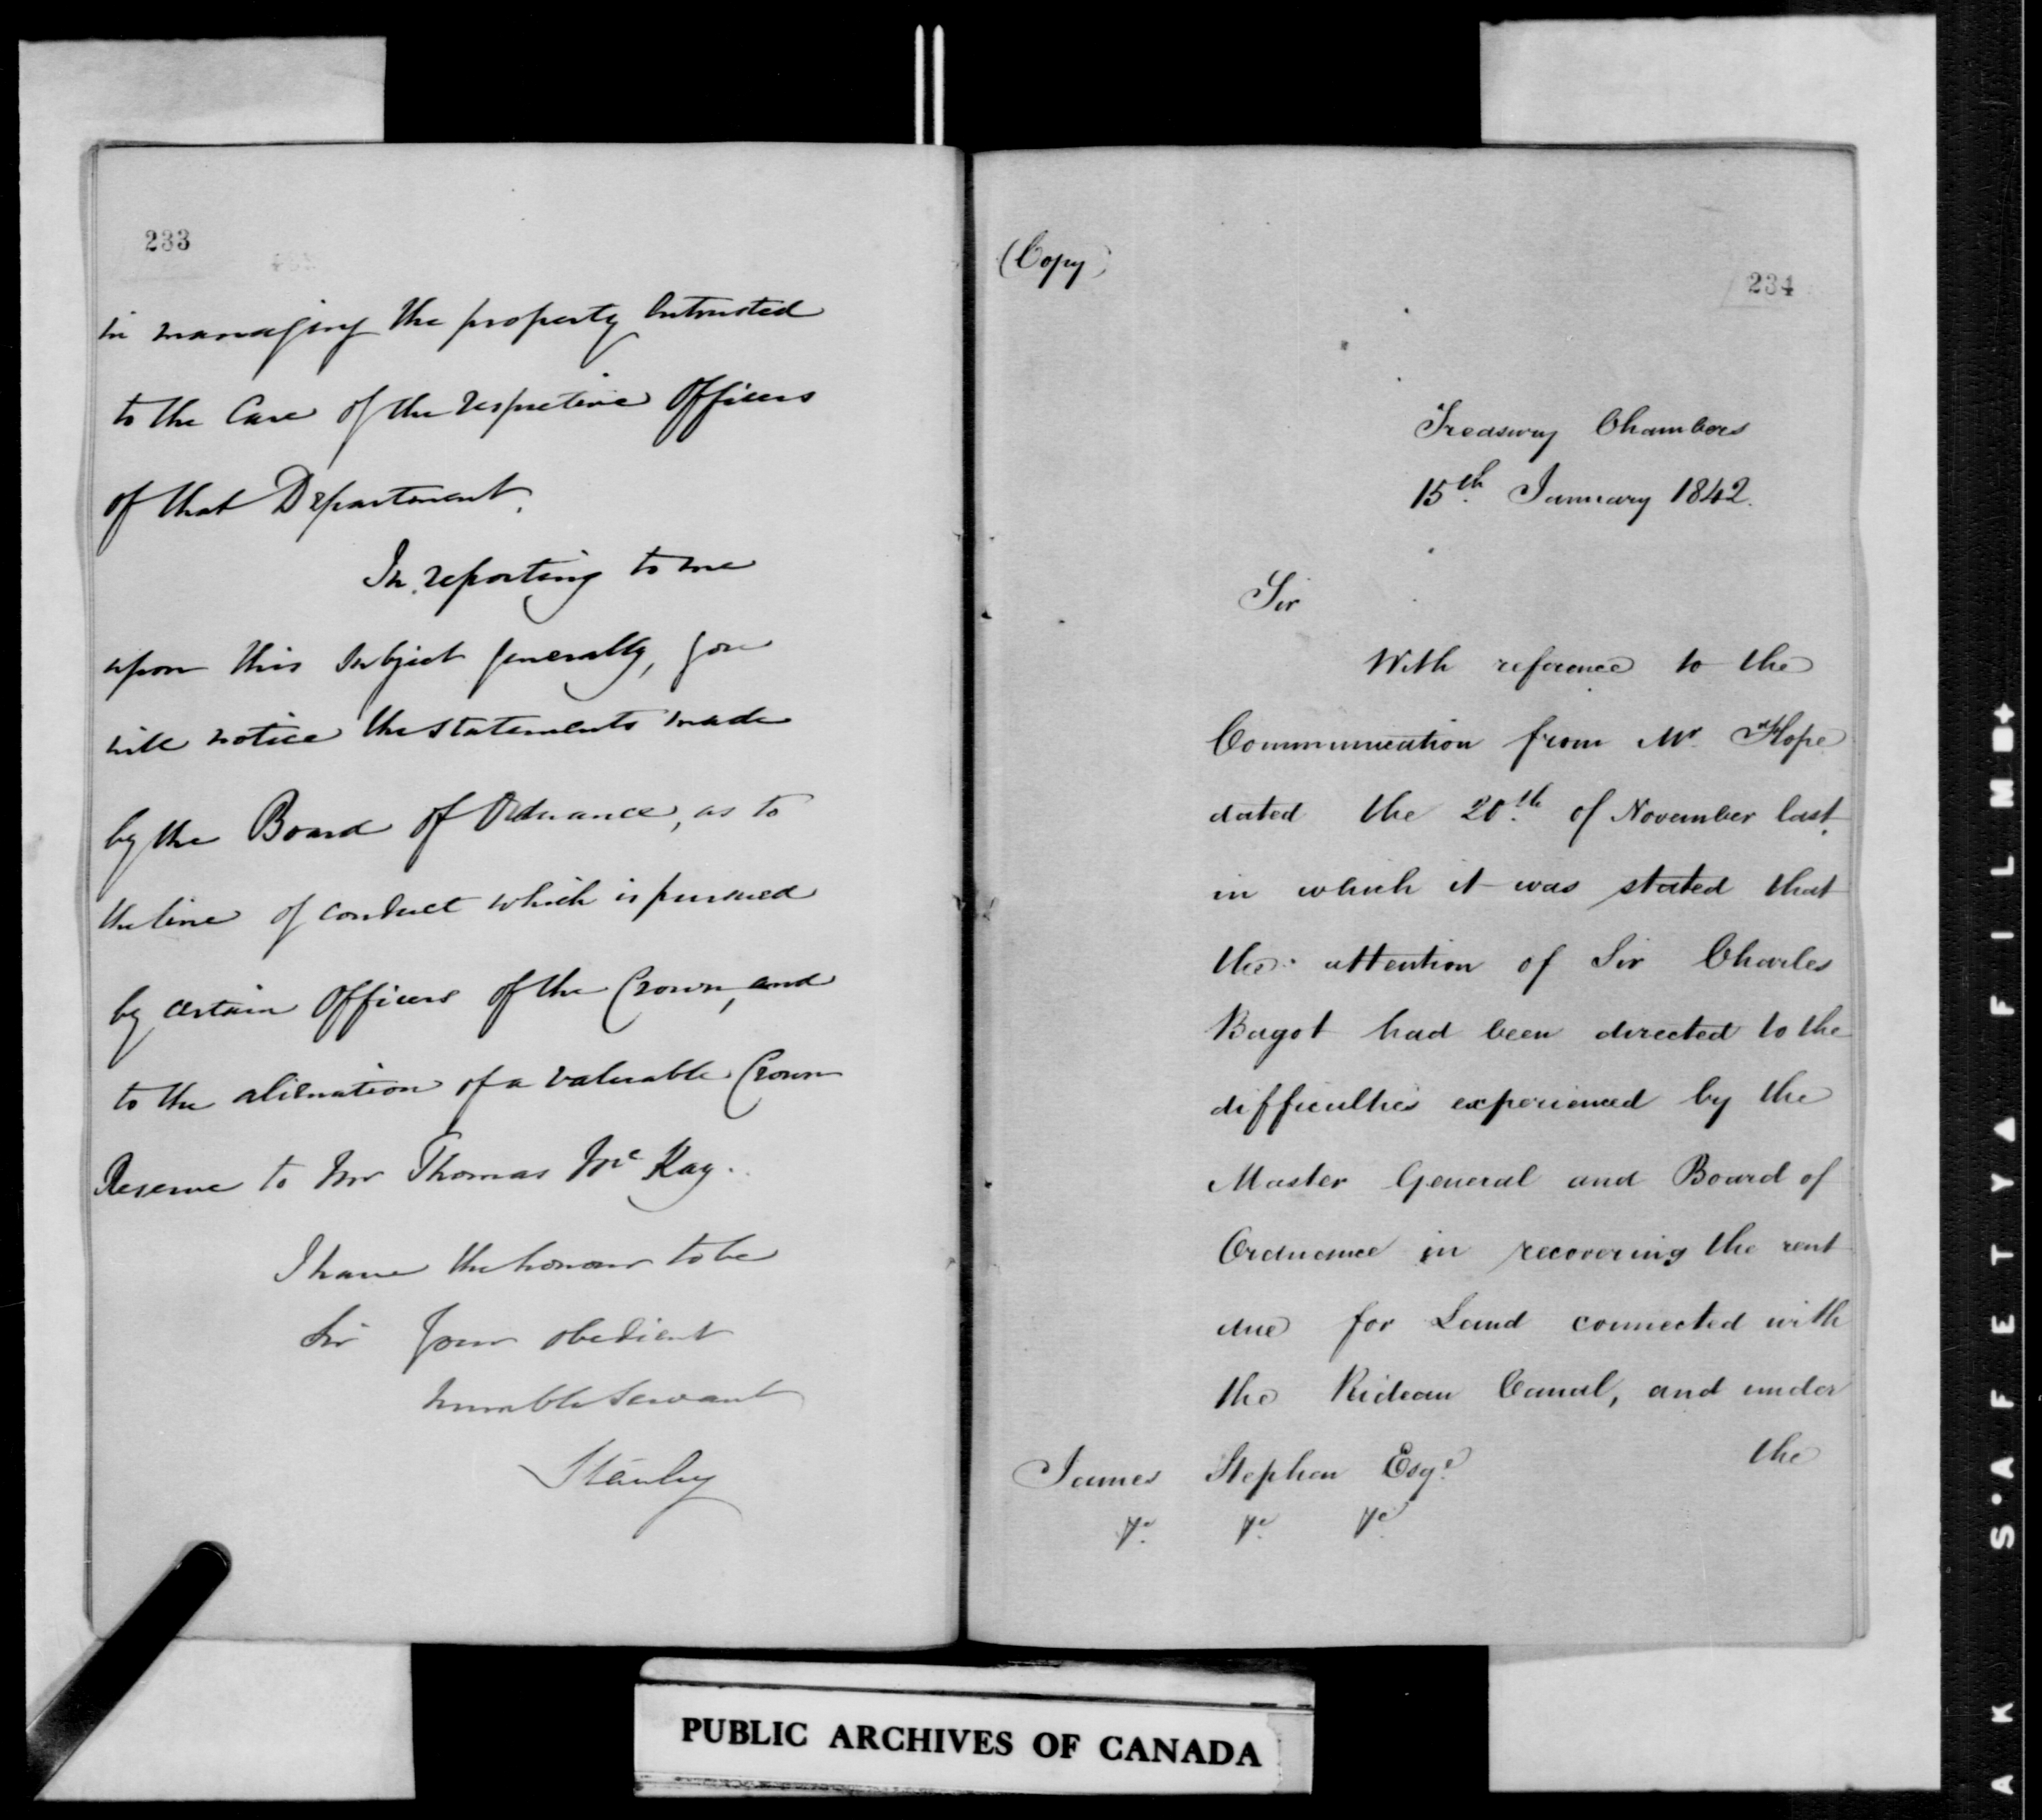 233
in managing the property Intrusted
to the Care of the respective Officers
of that Department.
In reporting to me
upon this Subject generally, you
will notice the Statements made
by the Board of Ordnance, as to
the line of conduct which is pursued
by certain Officers of the Crown, and
to the alienation of a valuable Crown
Reserve to Mr Thomas McKay.
I have the honour to be
Sir Your obedient
humble Servant
Stanley
(Copy)
234
Treasury Chambers
15th January 1842.
Sir
With reference to the
Communication from Mr. Hope
dated the 20th of November last,
in which it was stated that
the attention of Sir Charles
Bagot had been directed to the
difficulties experienced by the
Master General and Board of
Ordnance in recovering the rent
due for Land connected with
the Rideau Canal, and under
the
James Stephen Esqe
&c &c &c
PUBLIC ARCHIVES OF CANADA
A K S·A F E T Y ▲ F I L M